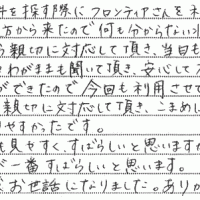 件を探す際にフロンティアさんをネ
方から来たので何も分からない
親切に対応して頂き、当日も
わがままも聞いて頂き安心して
ができたので今回も利用させて
親切に対応して頂き、こまめに
りやすかったです。
も見やすくすばらしいと思いますが
が一番すばらしいと思います。
お世話になりました。ありか